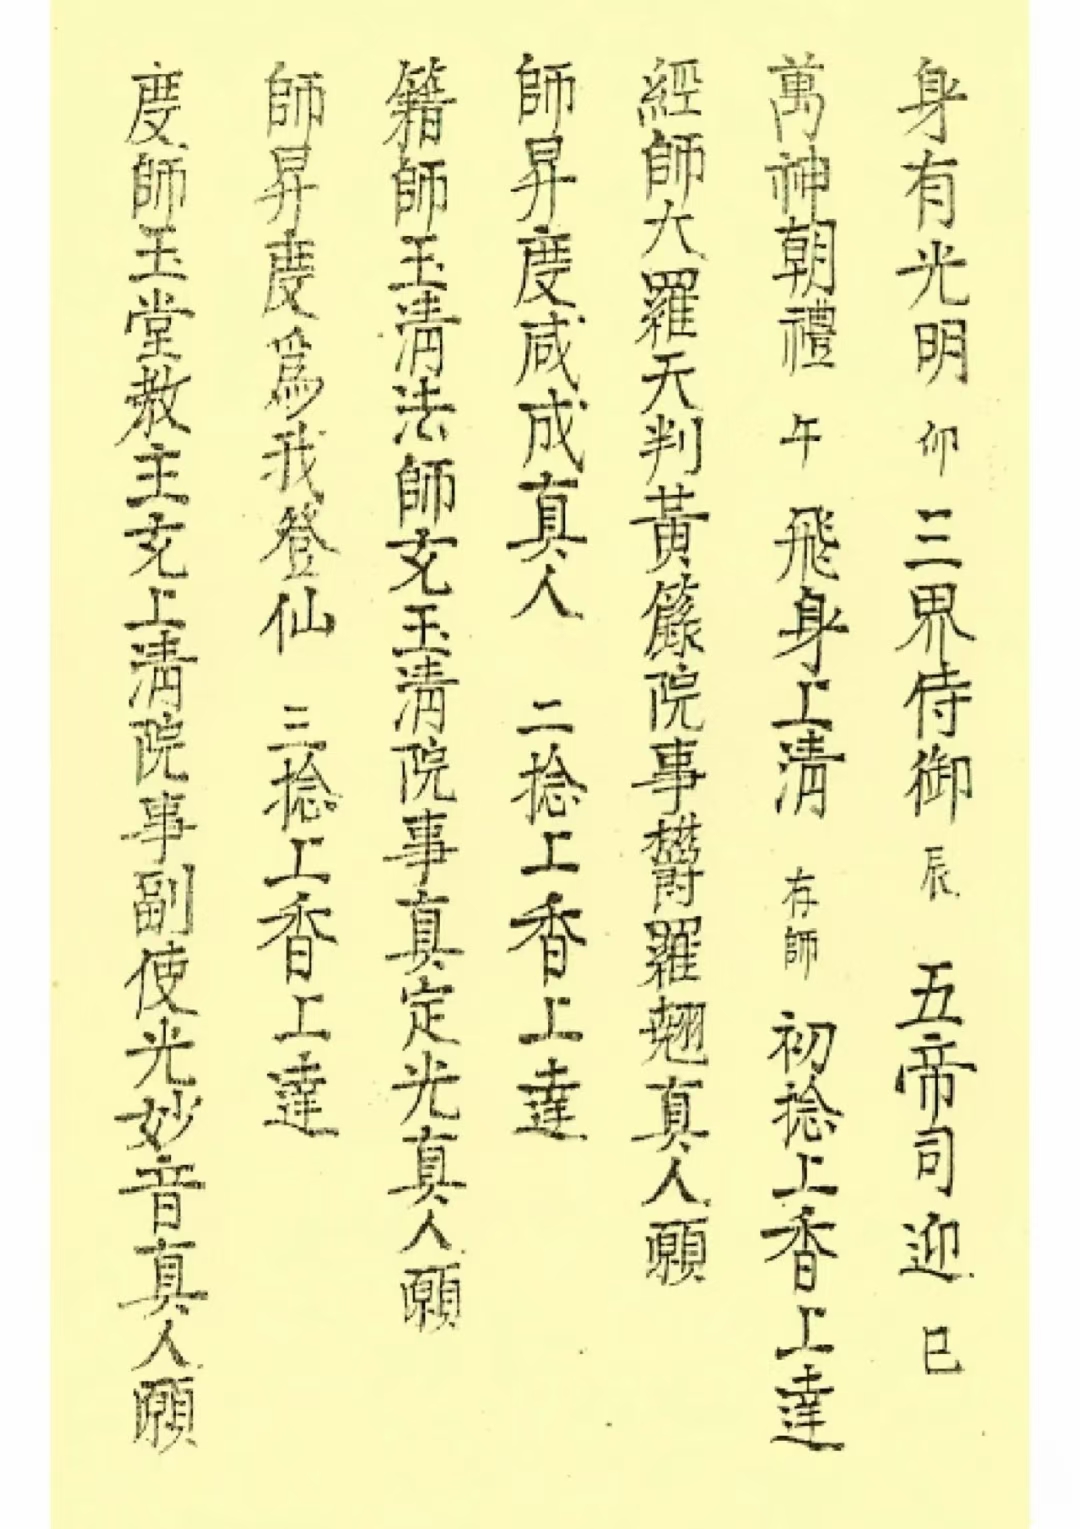 身有光明 卯 三界侍御 辰 五帝司迎 巳
萬神朝禮 午 飛身上清 存師 初捻上香上達
經師大羅天判黃籙院事欎羅翹真人願
師昇度咸成真人 二捻上香上達
籍師玉清法師玄玉清院事真定光真人願
師昇度爲我登仙 三捻上香上達
度師玉堂教主玄上清院事副使光妙音真人願